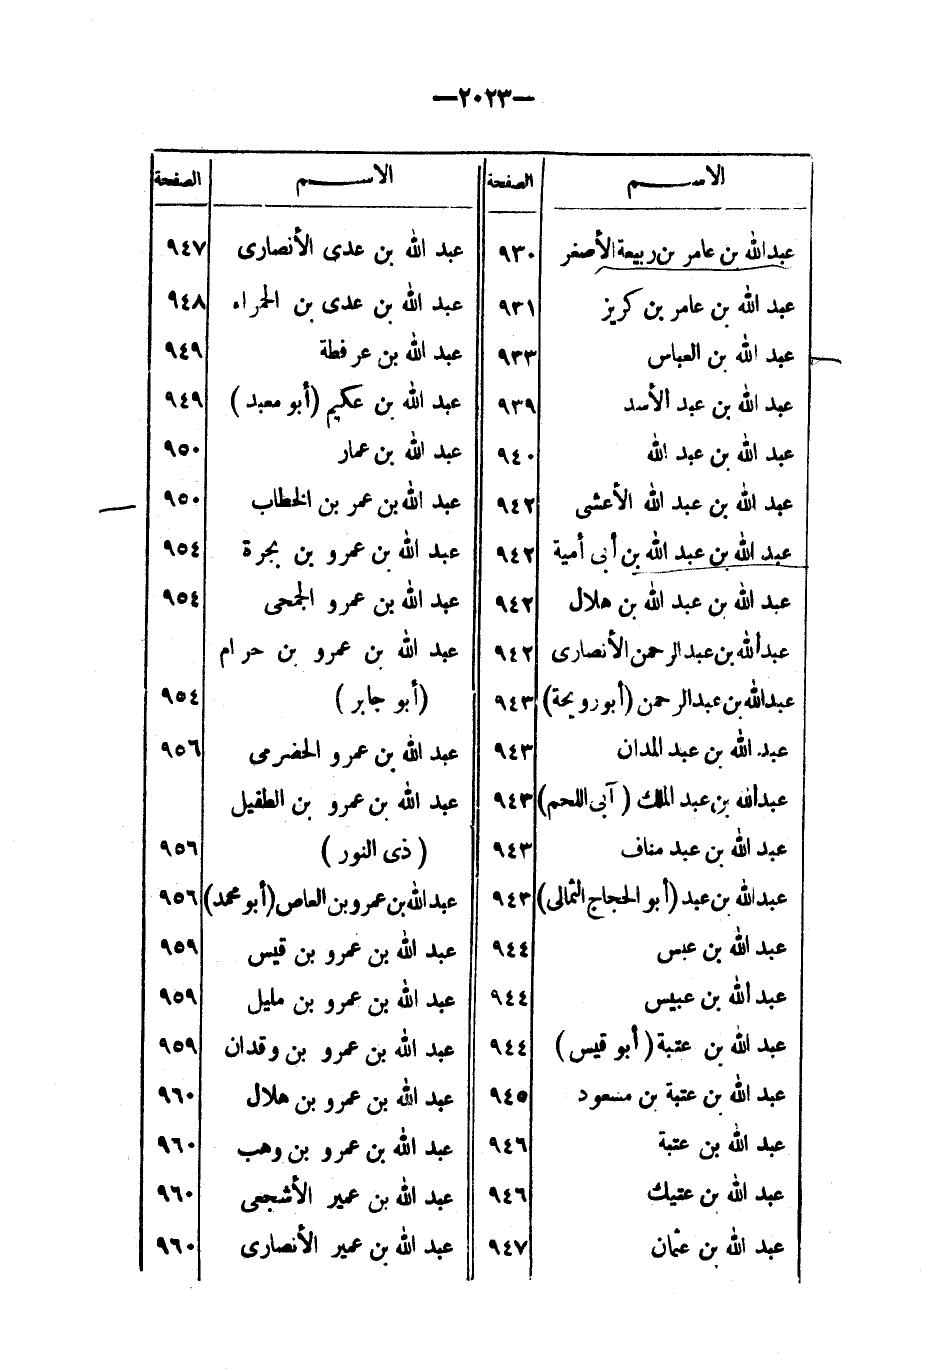 —٢٠٢٣—
الاســـم الصفحة
عبد الله بن عامر بن ربيعة الأصغر ٩٣٠
عبد الله بن عامر بن كريز ٩٣١
عبد الله بن العباس ٩٣٣
عبد الله بن عبد الأسد ٩٣٩
عبد الله بن عبد الله ٩٤٠
عبد الله بن عبد الله الأعشى ٩٤٢
عبد الله بن عبد الله بن أبى أمية ٩٤٢
عبد الله بن عبد الله بن هلال ٩٤٢
عبد الله بن عبد الرحمن الأنصارى ٩٤٢
عبد الله بن عبد الرحمن (أبو رويحة) ٩٤٣
عبد الله بن عبد المدان ٩٤٣
عبد الله بن عبد الملك ( آبى اللحم) ٩٤٣
عبد الله بن عبد مناف ٩٤٣
عبد الله بن عبد (أبو الحجاج الثمالى) ٩٤٣
عبد الله بن عبس ٩٤٤
عبد الله بن عبيس ٩٤٤
عبد الله بن عتبة ( أبو قيس ) ٩٤٤
عبد الله بن عتبة بن مسعود ٩٤٥
عبد الله بن عتبة ٩٤٦
عبد الله بن عتيك ٩٤٦
عبد الله بن عثمان ٩٤٧
الاســـم الصفحة
عبد الله بن عدى الأنصارى ٩٤٧
عبد الله بن عدى بن الحمراء ٩٤٨
عبد الله بن عرفطة ٩٤٩
عبد الله بن عكيم (أبو معبد ) ٩٤٩
عبد الله بن عمار ٩٥٠
عبد الله بن عمر بن الخطاب ٩٥٠
عبد الله بن عمرو بن بجرة ٩٥٤
عبد الله بن عمرو الجمحى ٩٥٤
عبد الله بن عمرو بن حرام
(أبو جابر ) ٩٥٤
عبد الله بن عمرو الحضرمى ٩٥٦
عبد الله بن عمرو بن الطفيل
( ذى النور ) ٩٥٦
عبد الله بن عمرو بن العاص (أبو محمد) ٩٥٦
عبد الله بن عمرو بن قيس ٩٥٩
عبد الله بن عمرو بن مليل ٩٥٩
عبد الله بن عمرو بن وقدان ٩٥٩
عبد الله بن عمرو بن هلال ٩٦٠
عبد الله بن عمرو بن وهب ٩٦٠
عبد الله بن عمير الأشجعى ٩٦٠
عبد الله بن عمير الأنصارى ٩٦٠